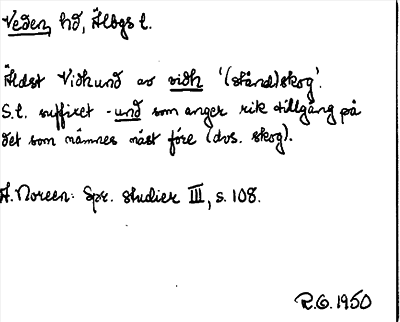 Veden, hd, Älvsbgs l.
Äldst Vidhund av vidh '(stånd)skog'.
S.l. suffixet -und som anger rik tillgång på
det som nämnes näst före (dvs. skog).
A. Noreen: Spr. studier III, s. 108.
R.G. 1950